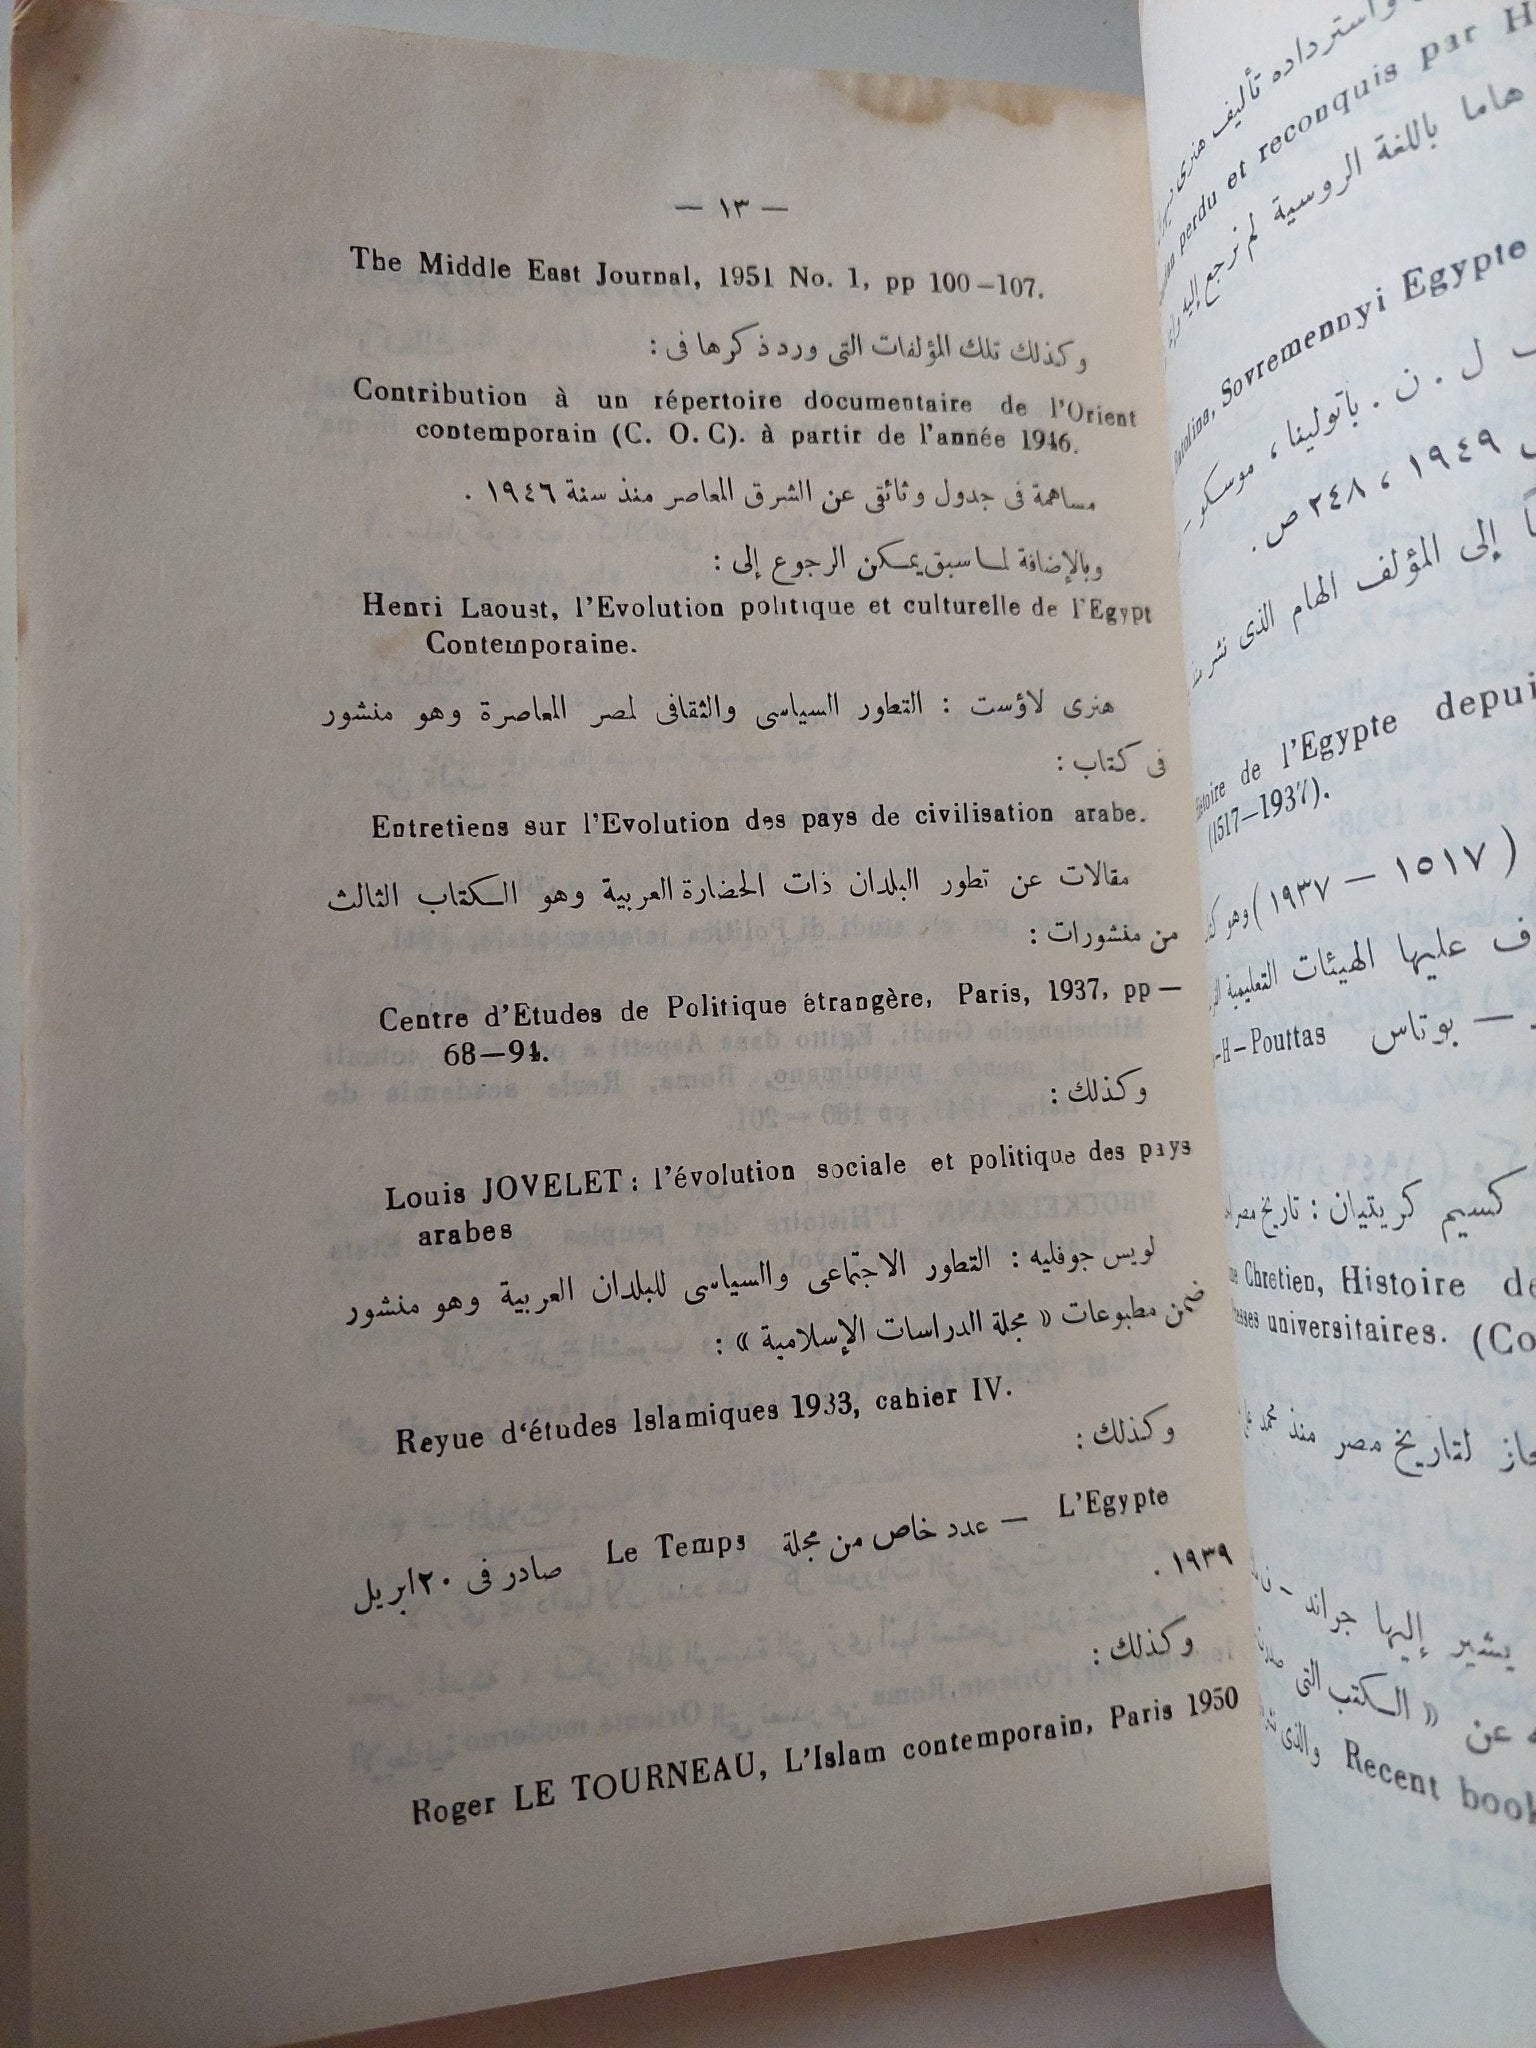 — ١٣ —
The Middle East Journal, 1951 No. 1, pp 100—107.
وكذلك تلك المؤلفات التى ورد ذكرها فى :
Contribution à un répertoire documentaire de l'Orient
contemporain (C. O. C). à partir de l'année 1946.
مساهمة فى جدول وثائقى عن الشرق المعاصر منذ سنة ١٩٤٦ .
وبالإضافة لما سبق يمكن الرجوع إلى :
Henri Laoust, l'Evolution politique et culturelle de l'Egypt
Contemporaine.
هنرى لاؤست : التطور السياسى والثقافى لمصر المعاصرة وهو منشور
فى كتاب :
Entretiens sur l'Evolution des pays de civilisation arabe.
مقالات عن تطور البلدان ذات الحضارة العربية وهو الكتاب الثالث
من منشورات :
Centre d'Etudes de Politique étrangère, Paris, 1937, pp —
68—94.
وكذلك :
Louis JOVELET : l'évolution sociale et politique des pays
arabes
لويس جوفليه : التطور الاجتماعى والسياسى للبلدان العربية وهو منشور
ضمن مطبوعات « مجلة الدراسات الإسلامية » :
Reyue d'études Islamiques 1933, cahier IV.
وكذلك :
L'Egypte — عدد خاص من مجلة Le Temps صادر فى ٢٠ ابريل
١٩٣٩ .
وكذلك :
Roger LE TOURNEAU, L'Islam contemporain, Paris 1950
واسترداده تأليف هنرى
perdu et reconquis par H
هاما باللغة الروسية لم نرجع إليه
Sovremennyi Egypte
ل . ن . باتولينا ، موسكو —
١٩٤٩ ، ٢٤٨ ص .
إلى المؤلف الهام الذى نشر
de l'Egypte depui
(1517—1937).
( ١٥١٧ — ١٩٣٧ ) وهو
عليها الهيئات التعليمية
-H—Pouttas بوتاس —
كسيم كريتيان : تاريخ مصر
Chretien, Histoire de
universitaires. (Co
لتاريخ مصر منذ محمد
يشير إليها جراند —
عن « الكتب التى
Recent book والذى